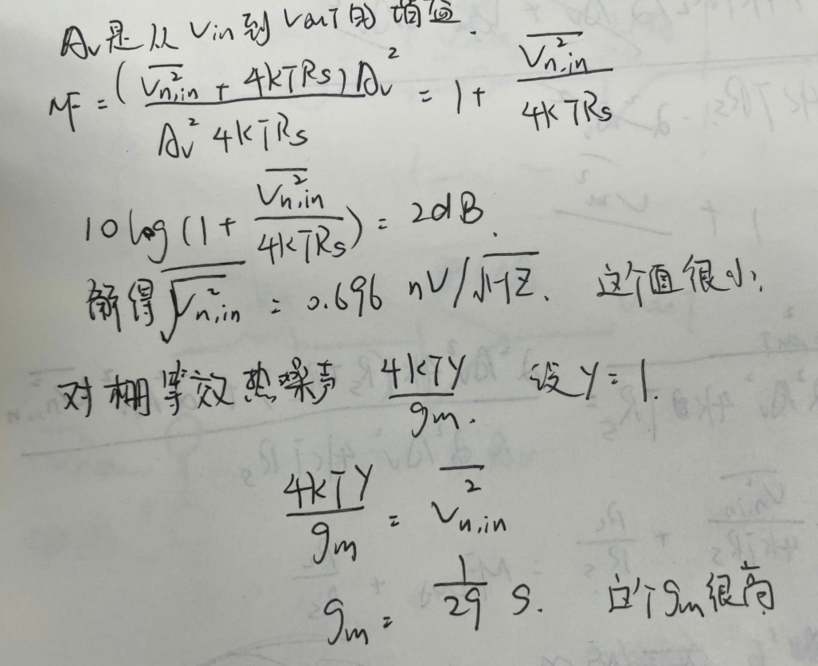 Av是从 Vin到 Vout的增益.
NF = (V²n,in + 4kTRs)Av² / Av² 4kTRs = 1 + V²n,in / 4kTRs
10log(1 + V²n,in / 4kTRs) = 2dB.
解得 √V²n,in = 0.696 nV/√HZ. 这个值很小.
对栅等效热噪声 4kTγ / gm. 设γ=1.
4kTγ / gm = V²n,in
gm = 1/29 S. 这个gm很高